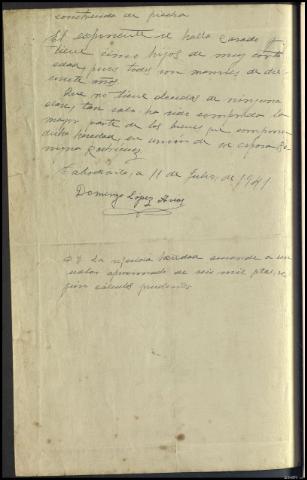 construida de piedra
El exponente se halla casado y
tiene cinco hijos de muy corta
edad, pues todos son menores de die-
cisiete años.
Que no tiene deudas de ninguna
clase, tan solo ha sido comprador la
mayor parte de los bienes que componen
dicha heredad, en unión de su esposa
Rodríguez
a 11 de Julio, de 1941
Domingo López Arias
La repetida heredad asciende a un
valor aproximado de seis mil ptas, se-
gún cálculos prudentes